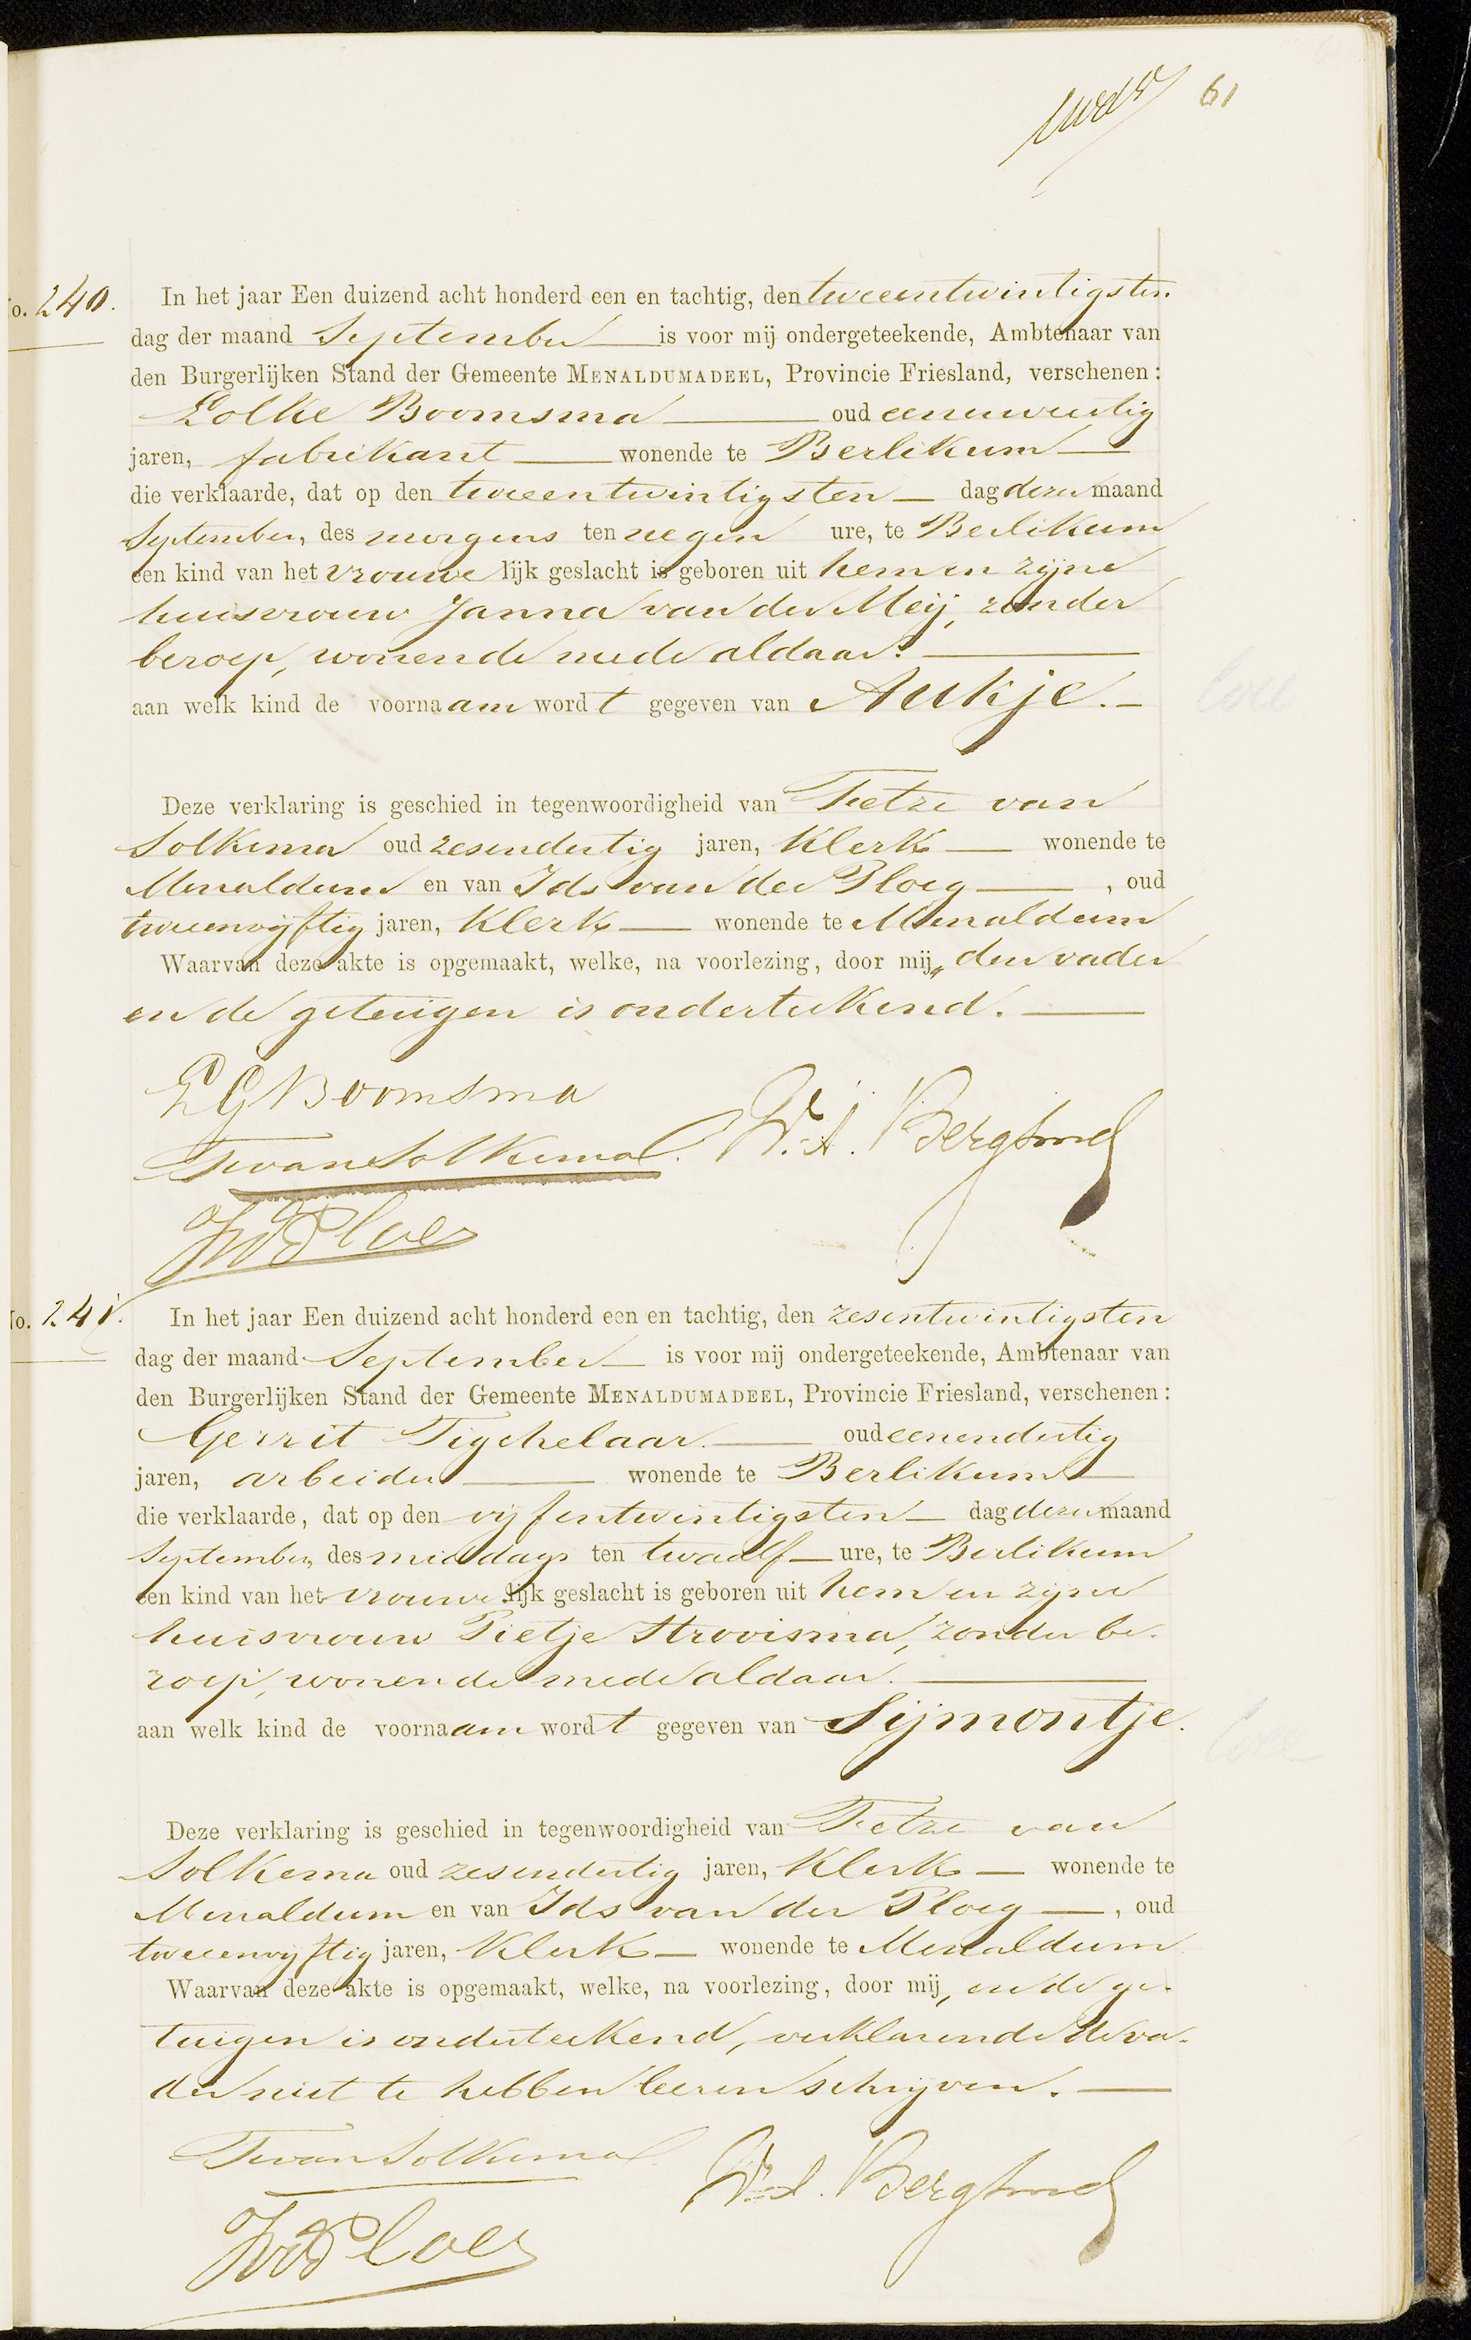 61
No. 240.
In het jaar Een duizend acht honderd een en tachtig, den tweeentwintigsten
dag der maand September is voor mij ondergeteekende, Ambtenaar van
den Burgerlijken Stand der Gemeente MENALDUMADEEL, Provincie Friesland, verschenen:
Eolke Boomsma oud eenenveertig
jaren, fabrikant wonende te Berlikum
die verklaarde, dat op den tweeentwintigsten dag dezer maand
September, des morgens ten negen ure, te Berlikum
een kind van het vrouwelijk geslacht is geboren uit hem en zijne
huisvrouw Janna van der Meij, zonder
beroep, wonende mede aldaar.
aan welk kind de voornaam wordt gegeven van Aukje.
Deze verklaring is geschied in tegenwoordigheid van Tietze van
Solkema oud zesendertig jaren, Klerk wonende te
Menaldum en van Ids van der Ploeg, oud
tweeenvijftig jaren, Klerk wonende te Menaldum
Waarvan deze akte is opgemaakt, welke, na voorlezing, door mij, den vader
en de getuigen is onderteekend.
E G Boomsma
T van Solkema.
W. A. Bergsma
I v d Ploeg
No. 241.
In het jaar Een duizend acht honderd een en tachtig, den zesentwintigsten
dag der maand September is voor mij ondergeteekende, Ambtenaar van
den Burgerlijken Stand der Gemeente MENALDUMADEEL, Provincie Friesland, verschenen:
Gerrit Tigchelaar. oud eenendertig
jaren, arbeider wonende te Berlikum
die verklaarde, dat op den vijfentwintigsten dag dezer maand
September, des middags ten twaalf ure, te Berlikum
een kind van het vrouwelijk geslacht is geboren uit hem en zijne
huisvrouw Pietje Strooisma, zonder be-
roep, wonende mede aldaar.
aan welk kind de voornaam wordt gegeven van Sijmontje.
Deze verklaring is geschied in tegenwoordigheid van Tietze van
Solkema oud zesendertig jaren, Klerk wonende te
Menaldum en van Ids van der Ploeg, oud
tweeenvijftig jaren, Klerk wonende te Menaldum
Waarvan deze akte is opgemaakt, welke, na voorlezing, door mij, en de ge-
tuigen is onderteekend, verklarende de va-
der niet te hebben leeren schrijven.
T van Solkema.
W. A. Bergsma
I v d Ploeg